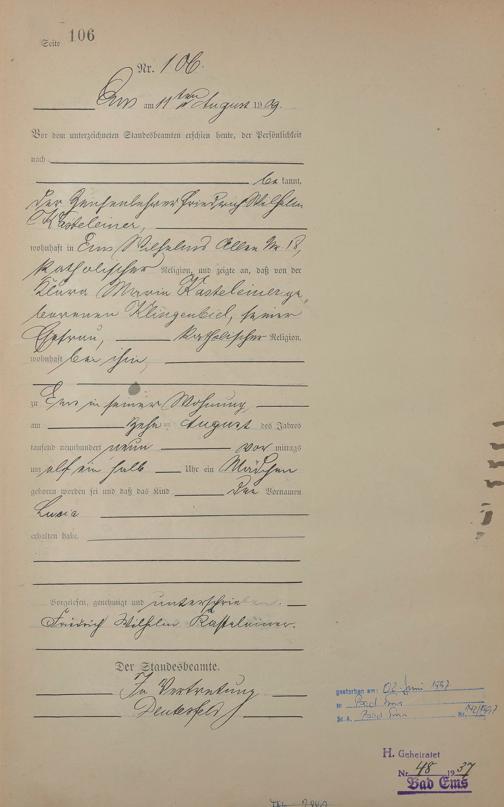 Seite 106
Nr. 106.
Ems am 11ten August 1909.
Vor dem unterzeichneten Standesbeamten erschien heute, der Persönlichkeit
nach
be kannt,
der Zeichenlehrer Friedrich Wilhelm
Kasteleiner,
wohnhaft in Ems Wilhelms Allee Nr. 18,
katholischer Religion, und zeigte an, daß von der
Klara Maria Kasteleiner ge,
borenen Klingenbiel, seiner
Ehefrau, katholischer Religion,
wohnhaft bei ihm,
zu Ems in seiner Wohnung,
am zehn August des Jahres
tausend neunhundert neun vor mittags
um elf ein halb Uhr ein Mädchen
geboren worden sei und daß das Kind den Vornamen
Luzia
erhalten habe.
Vorgelesen, genehmigt und unterschrieben.
Friedrich Wilhelm Kasteleiner.
Der Standesbeamte.
In Vertretung
gestorben am: 02. Juni 1997
in Bad Ems
St.A. Bad Ems Nr. 142/1997
H. Geheiratet
Nr. 48 1937
Bad Ems